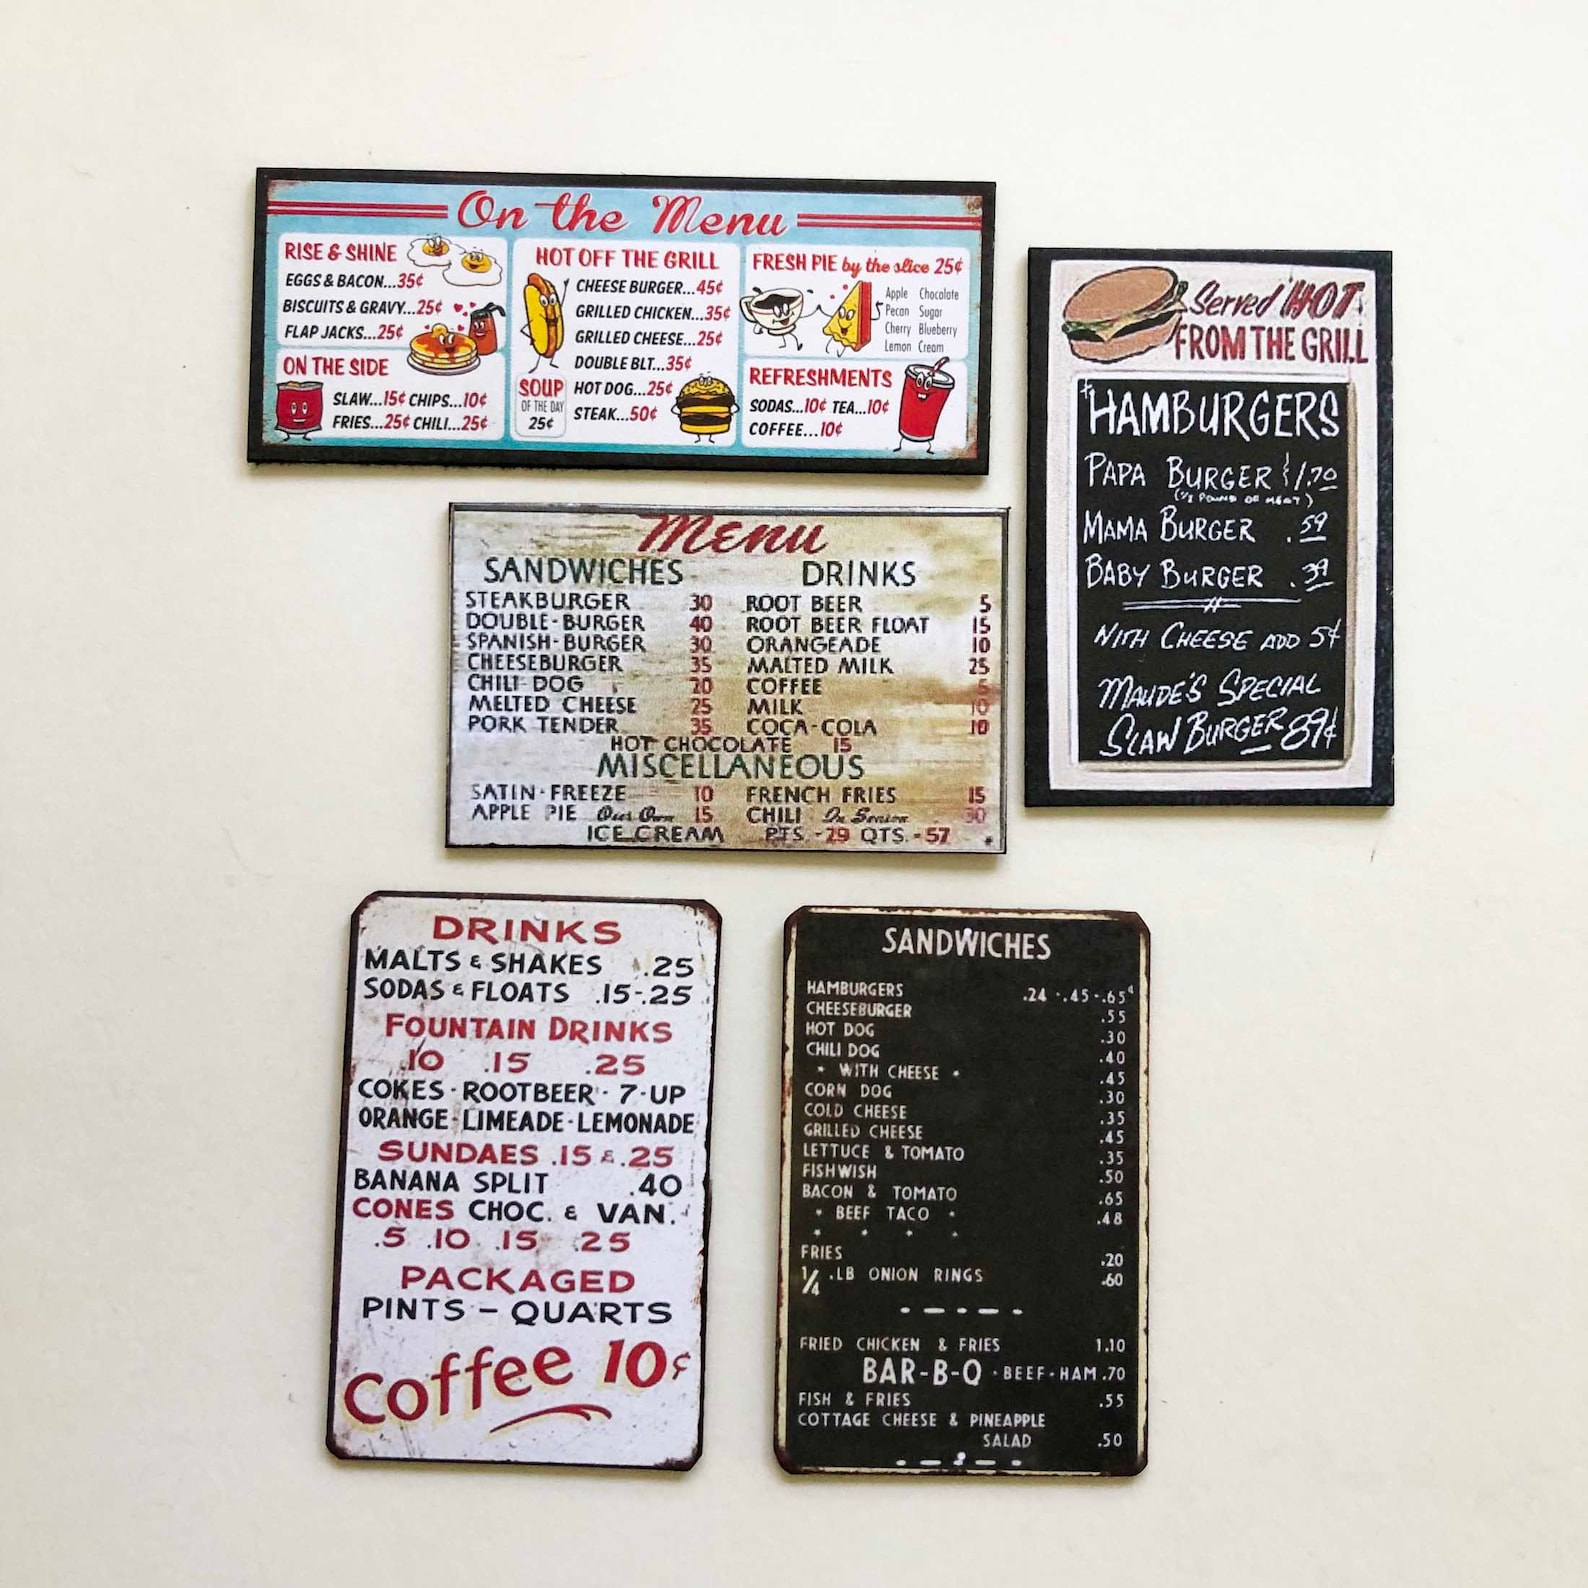 On the Menu
RISE & SHINE
EGGS & BACON...35¢
BISCUITS & GRAVY...25¢
FLAP JACKS...25¢
ON THE SIDE
SLAW...15¢ CHIPS...10¢
FRIES...25¢ CHILI...25¢
HOT OFF THE GRILL
CHEESE BURGER...45¢
GRILLED CHICKEN...35¢
GRILLED CHEESE...25¢
DOUBLE BLT...35¢
HOT DOG...25¢
STEAK...50¢
SOUP
OF THE DAY
25¢
FRESH PIE by the slice 25¢
Apple Chocolate
Pecan Sugar
Cherry Blueberry
Lemon Cream
REFRESHMENTS
SODAS...10¢ TEA...10¢
COFFEE...10¢
Served HOT
FROM THE GRILL
HAMBURGERS
PAPA BURGER 1.70
(1/2 POUND OF MEAT)
MAMA BURGER .59
BABY BURGER .39
WITH CHEESE ADD 5¢
MAUDE'S SPECIAL
SLAW BURGER 89¢
Menu
SANDWICHES
STEAKBURGER 30
DOUBLE-BURGER 40
SPANISH-BURGER 30
CHEESEBURGER 35
CHILI DOG 20
MELTED CHEESE 25
PORK TENDER 35
DRINKS
ROOT BEER 5
ROOT BEER FLOAT 15
ORANGEADE 10
MALTED MILK 25
COFFEE 5
MILK 10
COCA-COLA 10
HOT CHOCOLATE 15
MISCELLANEOUS
SATIN-FREEZE 10 FRENCH FRIES 15
APPLE PIE Our Own 15 CHILI In Season 30
ICE CREAM PTS.-29 QTS.-57
DRINKS
MALTS & SHAKES .25
SODAS & FLOATS .15-.25
FOUNTAIN DRINKS
.10 .15 .25
COKES-ROOTBEER-7-UP
ORANGE-LIMEADE-LEMONADE
SUNDAES .15 & .25
BANANA SPLIT .40
CONES CHOC. & VAN.
.5 .10 .15 .25
PACKAGED
PINTS – QUARTS
Coffee 10¢
SANDWICHES
HAMBURGERS .24 -.45-.65¢
CHEESEBURGER .55
HOT DOG .30
CHILI DOG .40
* WITH CHEESE * .45
CORN DOG .30
COLD CHEESE .35
GRILLED CHEESE .45
LETTUCE & TOMATO .35
FISHWISH .50
BACON & TOMATO .65
* BEEF TACO * .48
FRIES .20
1/4 .LB ONION RINGS .60
FRIED CHICKEN & FRIES 1.10
BAR-B-Q - BEEF-HAM .70
FISH & FRIES .55
COTTAGE CHEESE & PINEAPPLE
SALAD .50